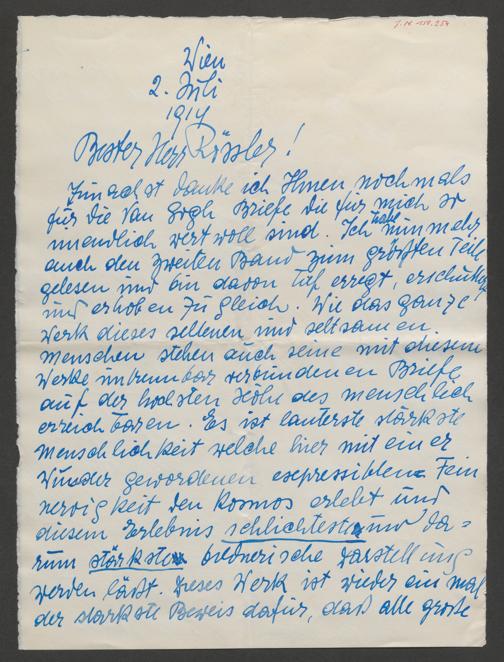 J.N. 159.254
Wien
2. Juli
1914
Bester Herr Rössler!
Zunächst danke ich Ihnen nochmals
für die Van Gogh Briefe die für mich so
unendlich wertvoll sind. Ich habe nunmehr
auch den zweiten Band zum größten Teile
gelesen und bin davon tief erregt, erschüttert
und erhoben zugleich. Wie das ganze
Werk dieses seltenen und seltsamen
Menschen stehen auch seine mit diesem
Werke untrennbar verbundenen Briefe
auf der höchsten Höhe des menschlich
erreichbaren. Es ist lauterste stärkste
Menschlichkeit welche hier mit einer
Wunder gewordenen expressiblen Fein
nervigkeit den Kosmos erlebt und
diesem Erlebnis schlichteste und da=
rum stärkste bildnerische Darstellung
werden läßt. Dieses Werk ist wieder einmal
der starkste Beweis dafür, daß alle große